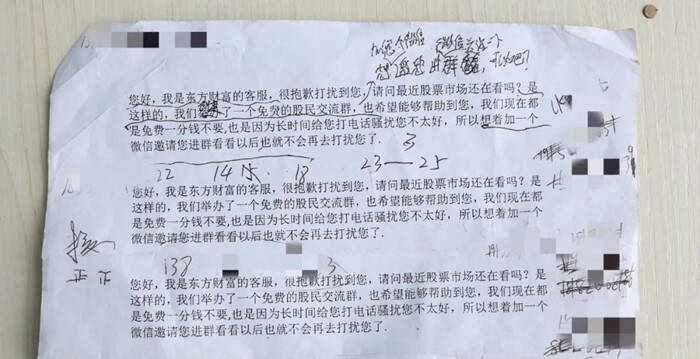 加您个微信
想邀您进群
您好，我是东方财富的客服，很抱歉打扰到您，请问最近股票市场还在看吗？是
这样的，我们了一个免费的股民交流群，也希望能够帮助到您，我们现在都
是免费一分钱不要,也是因为长时间给您打电话骚扰您不太好，所以想着加一个
微信邀请您进群看看以后也就不会再去打扰您了.
3
22 14 18 23—25
您好，我是东方财富的客服，很抱歉打扰到您，请问最近股票市场还在看吗？是
这样的，我们举办了一个免费的股民交流群，也希望能够帮助到您，我们现在都
是免费一分钱不要,也是因为长时间给您打电话骚扰您不太好，所以想着加一个
微信邀请您进群看看以后也就不会再去打扰您了.
正 正
138 3
您好，我是东方财富的客服，很抱歉打扰到您，请问最近股票市场还在看吗？是
这样的，我们举办了一个免费的股民交流群，也希望能够帮助到您，我们现在都
是免费一分钱不要,也是因为长时间给您打电话骚扰您不太好，所以想着加一个
微信邀请您进群看看以后也就不会再去打扰您了.